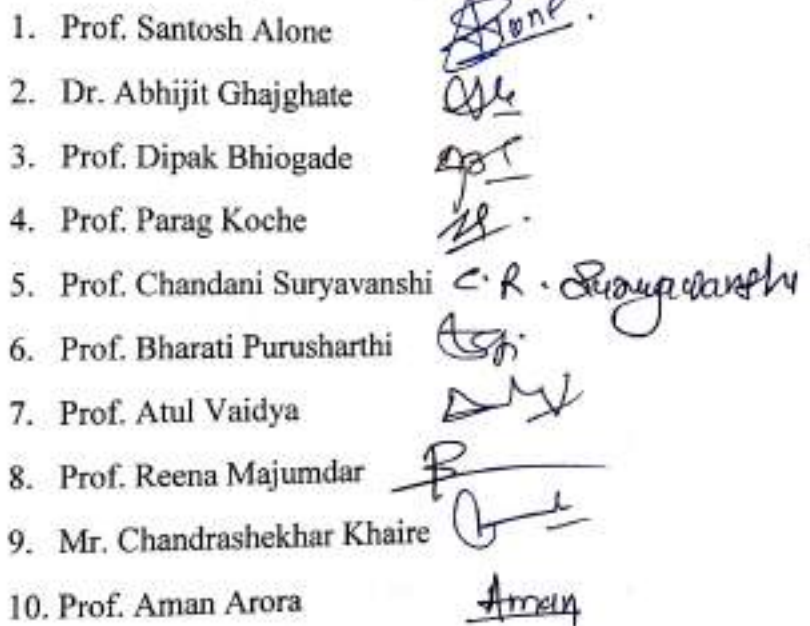 1. Prof. Santosh Alone Alone.
2. Dr. Abhijit Ghajghate
3. Prof. Dipak Bhiogade
4. Prof. Parag Koche
5. Prof. Chandani Suryavanshi C. R. Suryawanshi
6. Prof. Bharati Purusharthi
7. Prof. Atul Vaidya
8. Prof. Reena Majumdar
9. Mr. Chandrashekhar Khaire
10. Prof. Aman Arora Aman